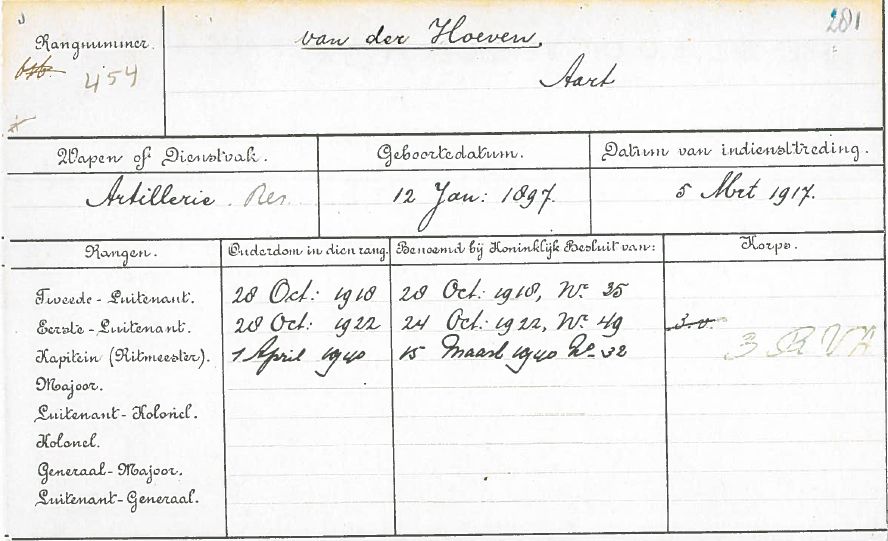 281
Rangnummer.
van der Hoeven,
454
Aart
Wapen of Dienstvak. Geboortedatum. Datum van indiensttreding.
Artillerie. Res. 12 Jan: 1897. 5 Mrt 1917.
Rangen. Ouderdom in dien rang. Benoemd bij Koninklijk Besluit van: Korps.
Tweede-Luitenant. 28 Oct: 1918 28 Oct: 1918, No 35
Eerste-Luitenant. 28 Oct: 1922 24 Oct: 1922, No 49
Kapitein (Ritmeester). 1 April 1940 15 Maart 1940 No 32 3 R V A
Majoor.
Luitenant-Kolonel.
Kolonel.
Generaal-Majoor.
Luitenant-Generaal.